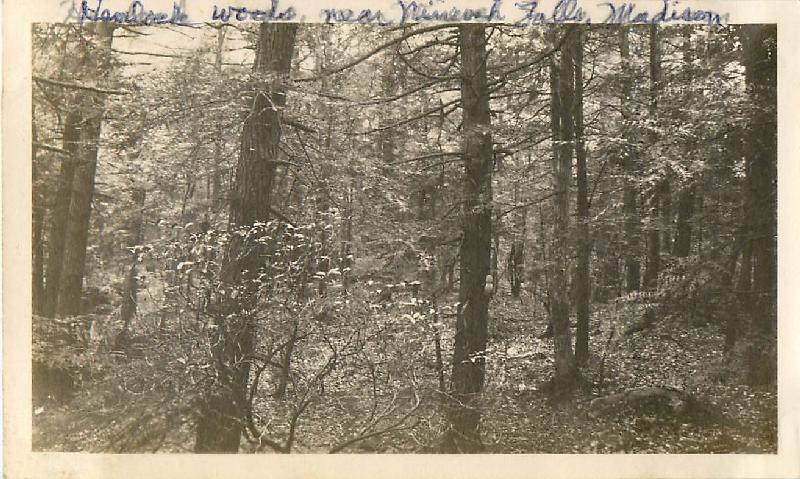 Hemlock woods, near Nineveh Falls, Madison.